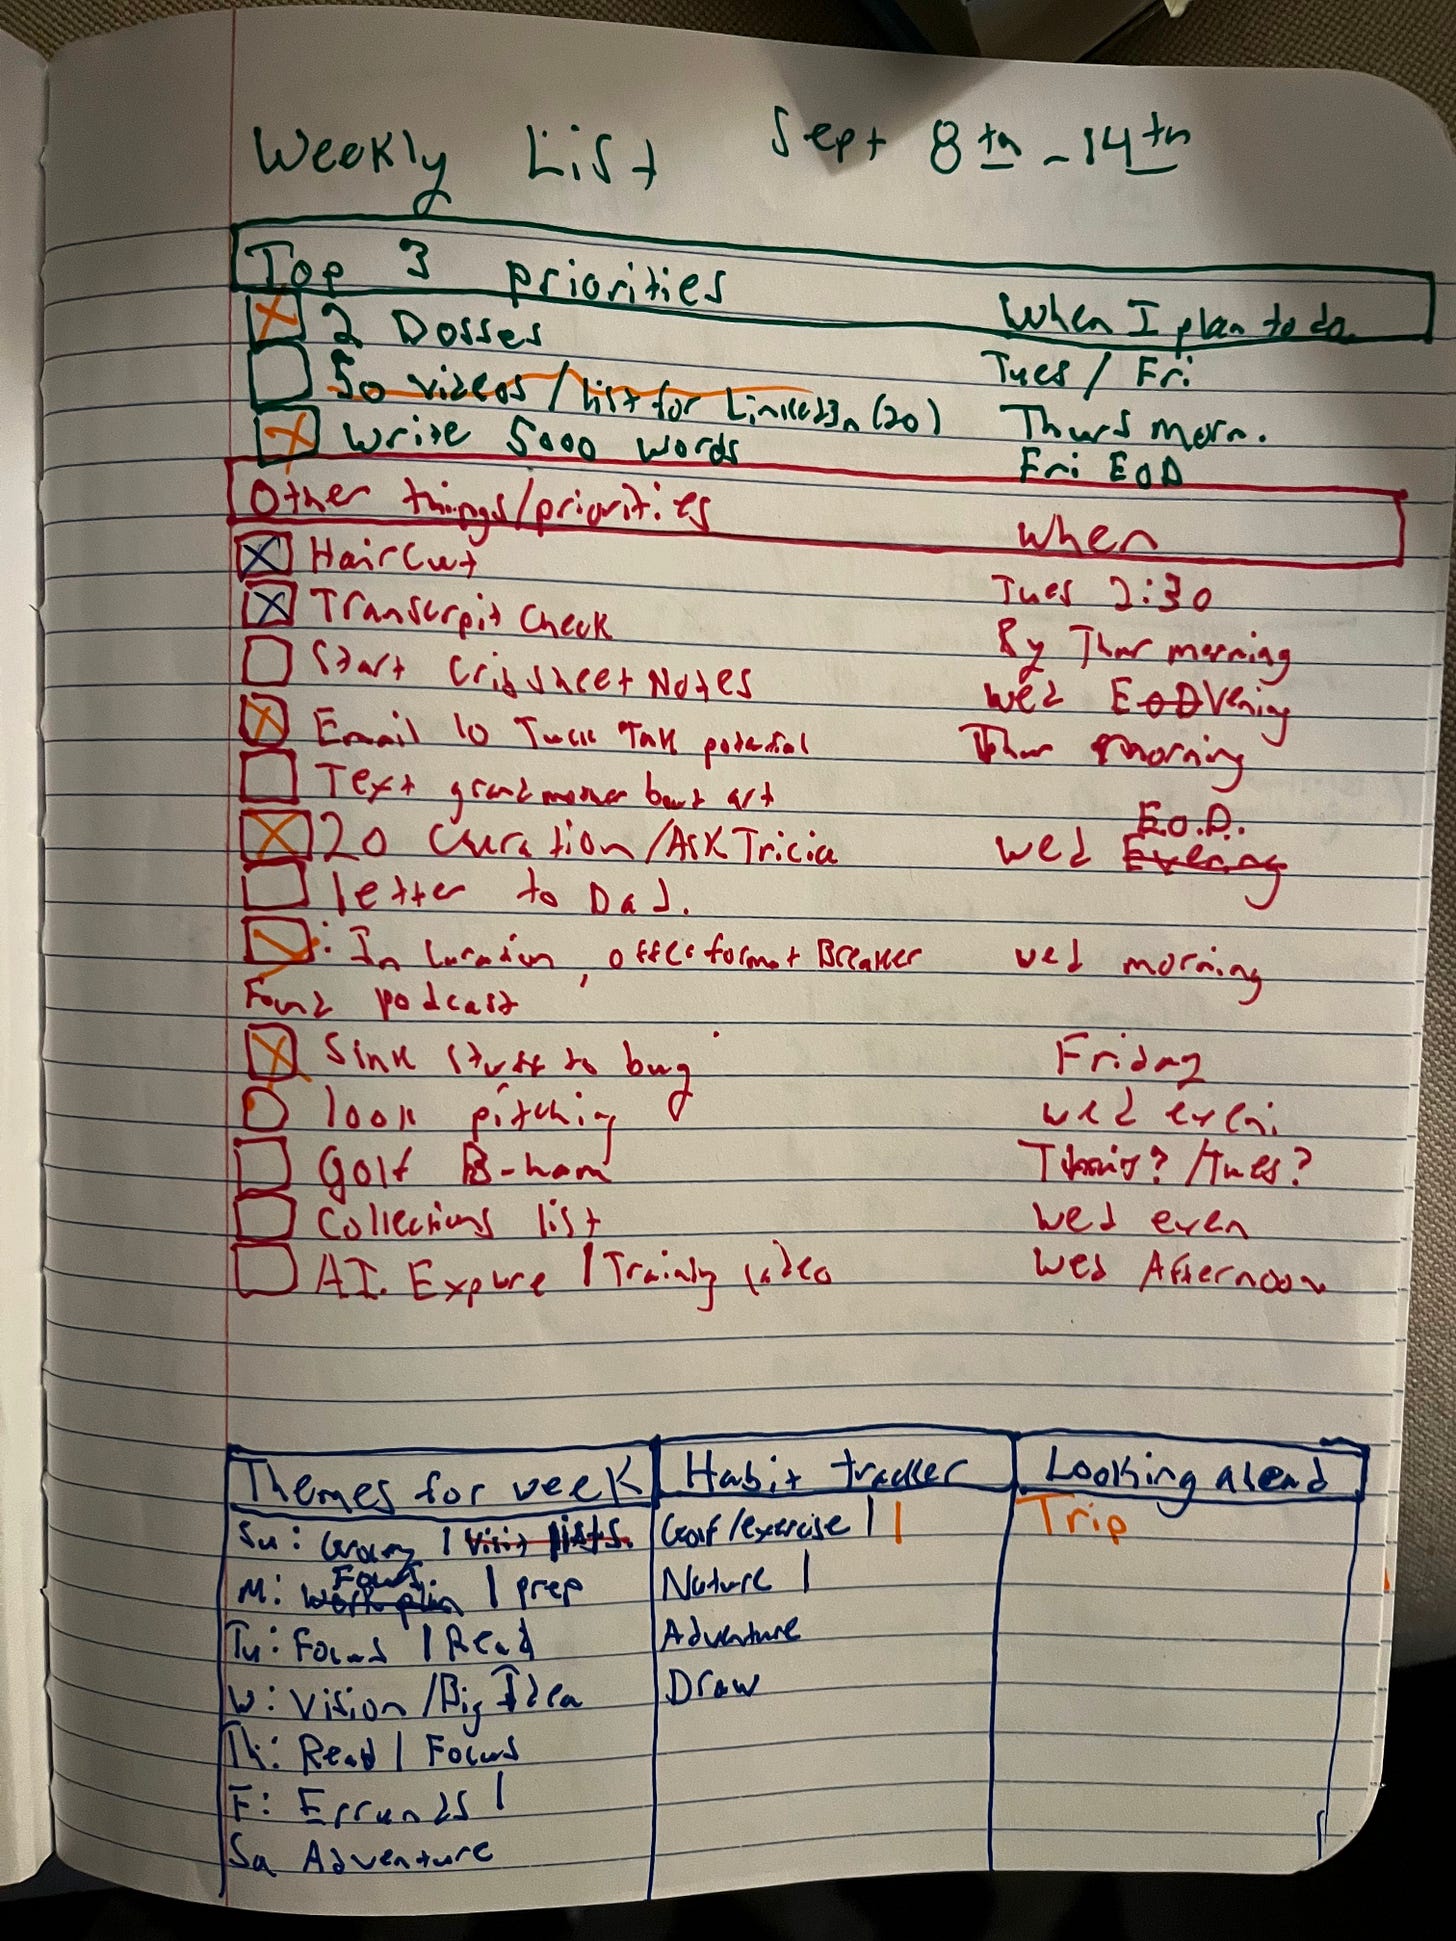 Weekly List Sept 8th - 14th
Top 3 priorities When I plan to do
2 Dosses Tues / Fri
50 videos / list for LinkedIn (20) Thurs morn.
Write 5000 words Fri EOD
Other things/priorities When
Haircut Tues 2:30
Transcrpit Check By Thur morning
Start Cribsheet Notes Wed EODVening
Email 10 Tuck Talk potential Thur morning
Text grandmother bout art
20 Curation/Ask Tricia Wed E.O.D. Evening
letter to Dad.
: In, office format Breaker wed morning
podcast
Sink stuff to buy Friday
look pitching wed eveni
Golf B-ham /Tues?
Collections list Wed even
A.I. Explore / Training video Wed Afternoon
Themes for week Habit tracker Looking ahead
Su: / visit lists. Golf/exercise | | Trip
M: Focus Work plan / prep Nature |
Tu: Focus / Read Adventure
W: Vision / Big Idea Draw
Th: Read / Focus
F: Errands /
Sa Adventure